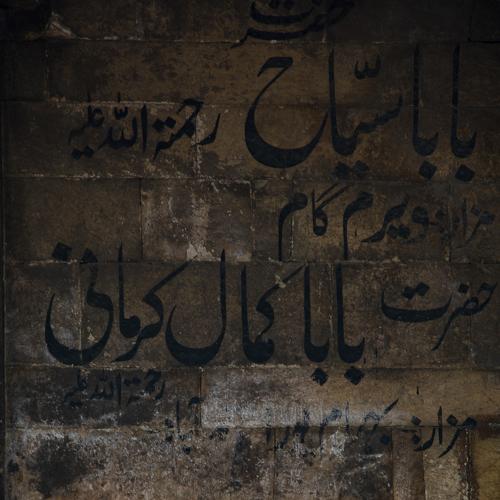 حضرت
بابا سیّاح رحمۃ اللہ علیہ
مزار: ویرم گام
حضرت بابا کمال کرمانی
رحمۃ اللہ علیہ
مزار: